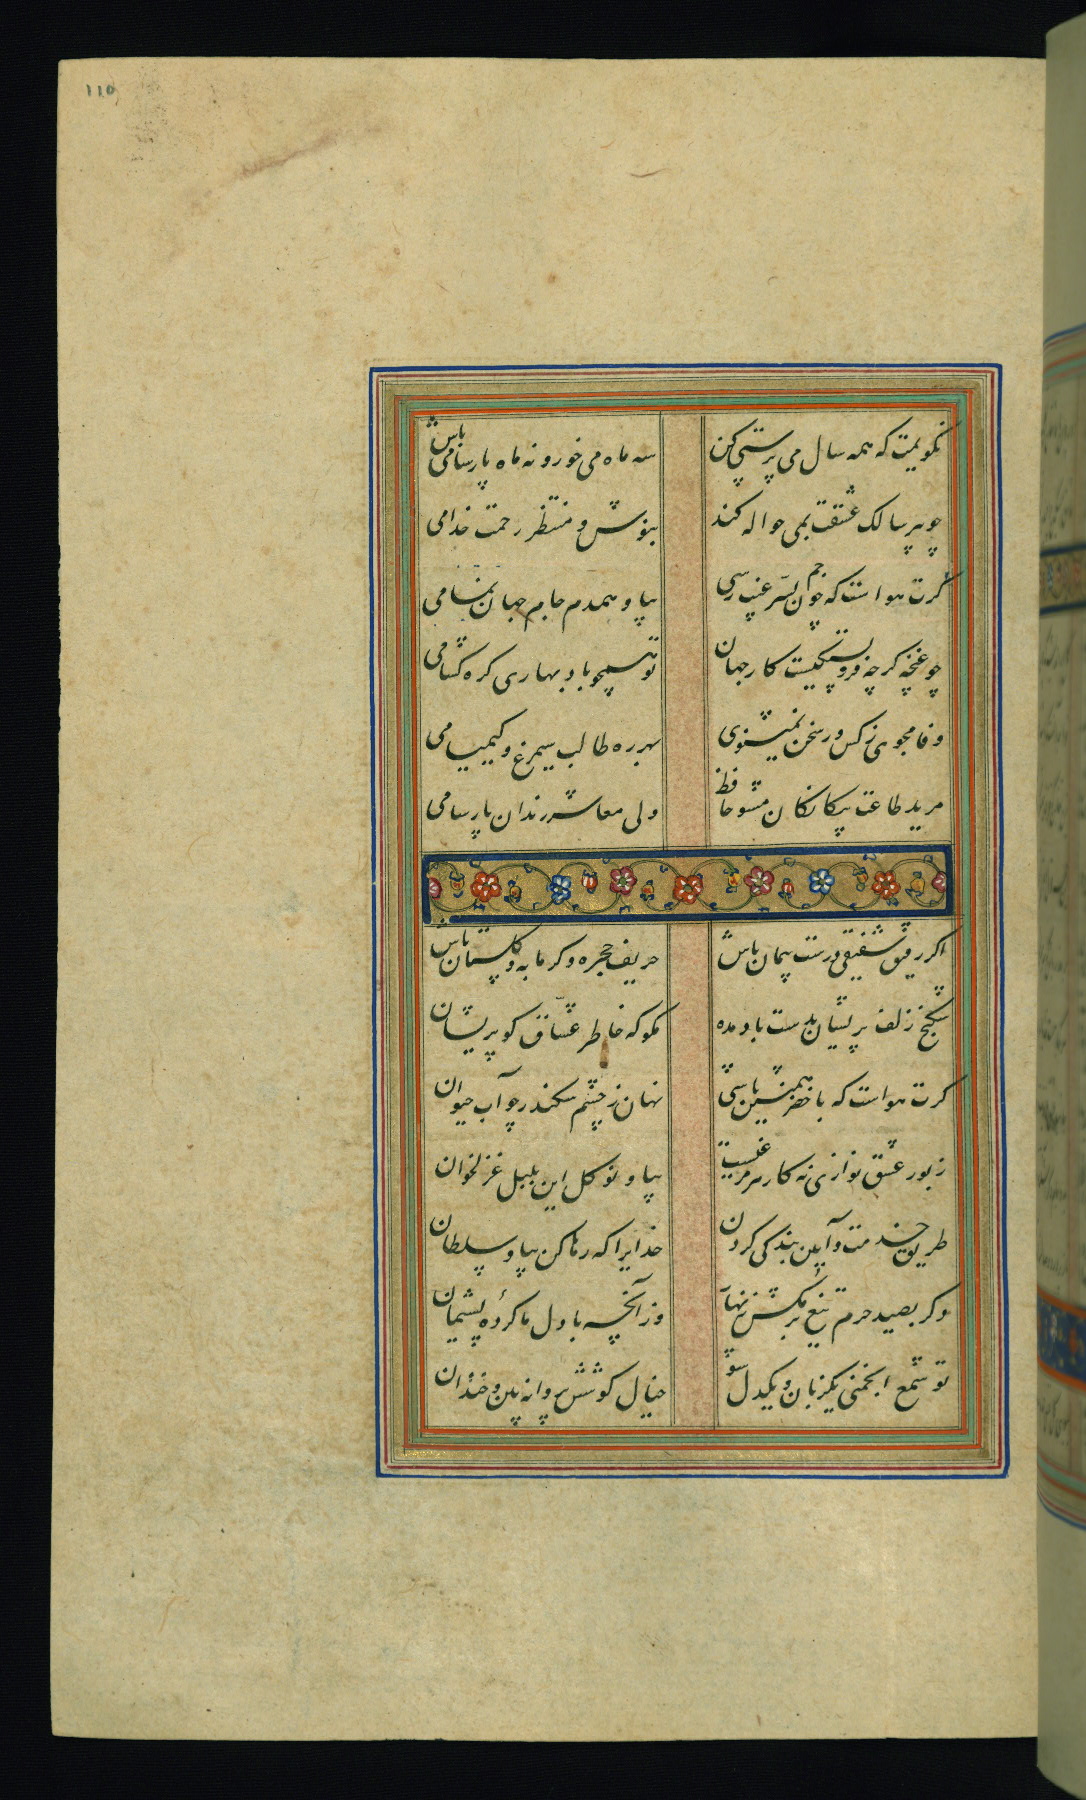 ۱۱۵
نکویمت که همه سال می پرستی کن سه ماه می خور و نه ماه پارسا می باش
چو پیر سالک عشقت بمی حواله کند بنوش و منتظر رحمت خدا می
کرت هواست که چون جم بسر غیب رسی بیا و همدم جام جهان نما می
چو غنچه کرچه فروبستکیست کار جهان تو همچو باد بهاری کره کشا می
وفا مجوی ز کس ور سخن نمیشنوی بهرزه طالب سیمرغ و کیمیا می
مرید طاعت بیکانکان مشو حافظ ولی معاشر رندان پارسا می
اکر رفیق شفیقی درست پیمان باش حریف حجره و کرمابه و کلستان باش
شکنج زلف پریشان بدست باد مده مکو که خاطر عشاق کو پریشان
کرت هواست که با خضر همنشین باشی نهان ز چشم سکندر چو آب حیوان
زبور عشق نوازی نه کار هر مرغیست بیا و نو کل این بلبل غزلخوان
طریق خدمت و آیین بندکی کردن خدایرا که رها کن بما و سلطان
دکر بصید حرم تیغ برمکش زنهار وز آنچه با دل ما کرده پشیمان
تو شمع انجمنی یکزبان و یکدل شو خیال کوشش پروانه بین و خندان